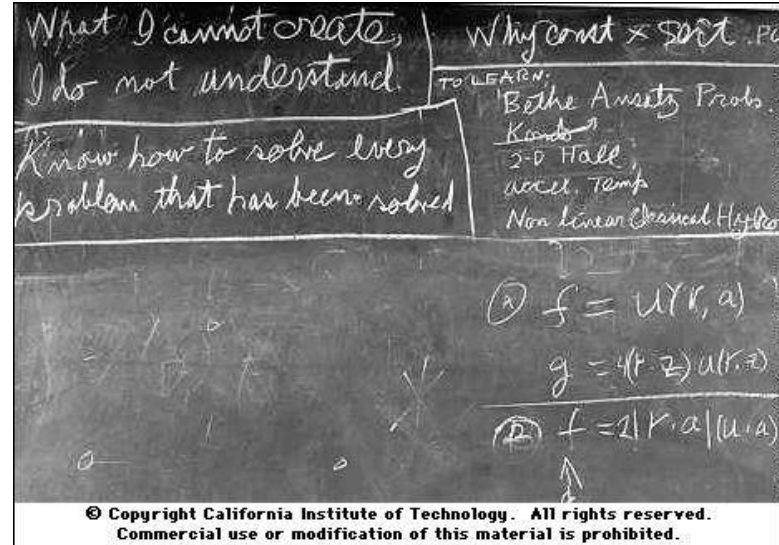 What I cannot create,
I do not understand.
Know how to solve every
problem that has been solved
Why const × sort . Po
TO LEARN:
Bethe Ansatz Probs.
Kondo
2-D Hall
accel. Temp
Non Linear Classical Hydro
f = U(r, a)
g = 4(r·z) u(r·z)
f = 2|r·a|(u·a)
© Copyright California Institute of Technology. All rights reserved.
Commercial use or modification of this material is prohibited.